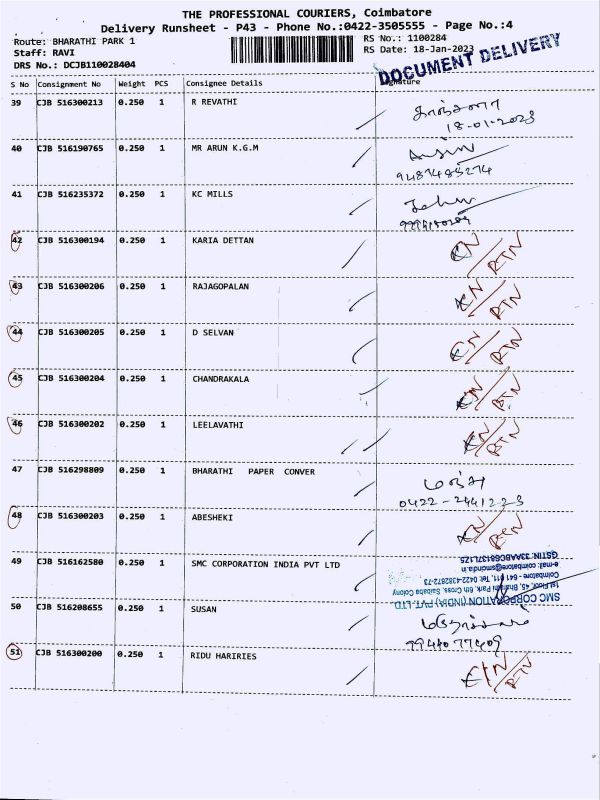 THE PROFESSIONAL COURIERS, Coimbatore
Delivery Runsheet - P43 - Phone No.:0422-3505555 - Page No.:4
Route: BHARATHI PARK 1 RS No.: 1100284
Staff: RAVI RS Date: 18-Jan-2023
DRS No.: DCJB110028404
DOCUMENT DELIVERY
S No Consignment No Weight PCS Consignee Details Signature
39 CJB 516300213 0.250 1 R REVATHI
18-01-2023
40 CJB 516190765 0.250 1 MR ARUN K.G.M
9487485274
41 CJB 516235372 0.250 1 KC MILLS
42 CJB 516300194 0.250 1 KARIA DETTAN CN/RTN
43 CJB 516300206 0.250 1 RAJAGOPALAN CN/RTN
44 CJB 516300205 0.250 1 D SELVAN CN/RTN
45 CJB 516300204 0.250 1 CHANDRAKALA CN/RTN
46 CJB 516300202 0.250 1 LEELAVATHI CN/RTN
47 CJB 516298809 0.250 1 BHARATHI PAPER CONVER
0422-2441223
48 CJB 516300203 0.250 1 ABESHEKI CN/RTN
49 CJB 516162580 0.250 1 SMC CORPORATION INDIA PVT LTD
SMC CORPORATION (INDIA) PVT. LTD
1st Floor, 45, Bharathi Park 6th Cross, Saibaba Colony
Coimbatore - 641 011. Tel: 0422-4328672-73
e-mail: coimbatore@smcindia.in
GSTIN: 33AABCS8137L1Z5
50 CJB 516208655 0.250 1 SUSAN
51 CJB 516300200 0.250 1 RIDU HARIRIES CN/RTN